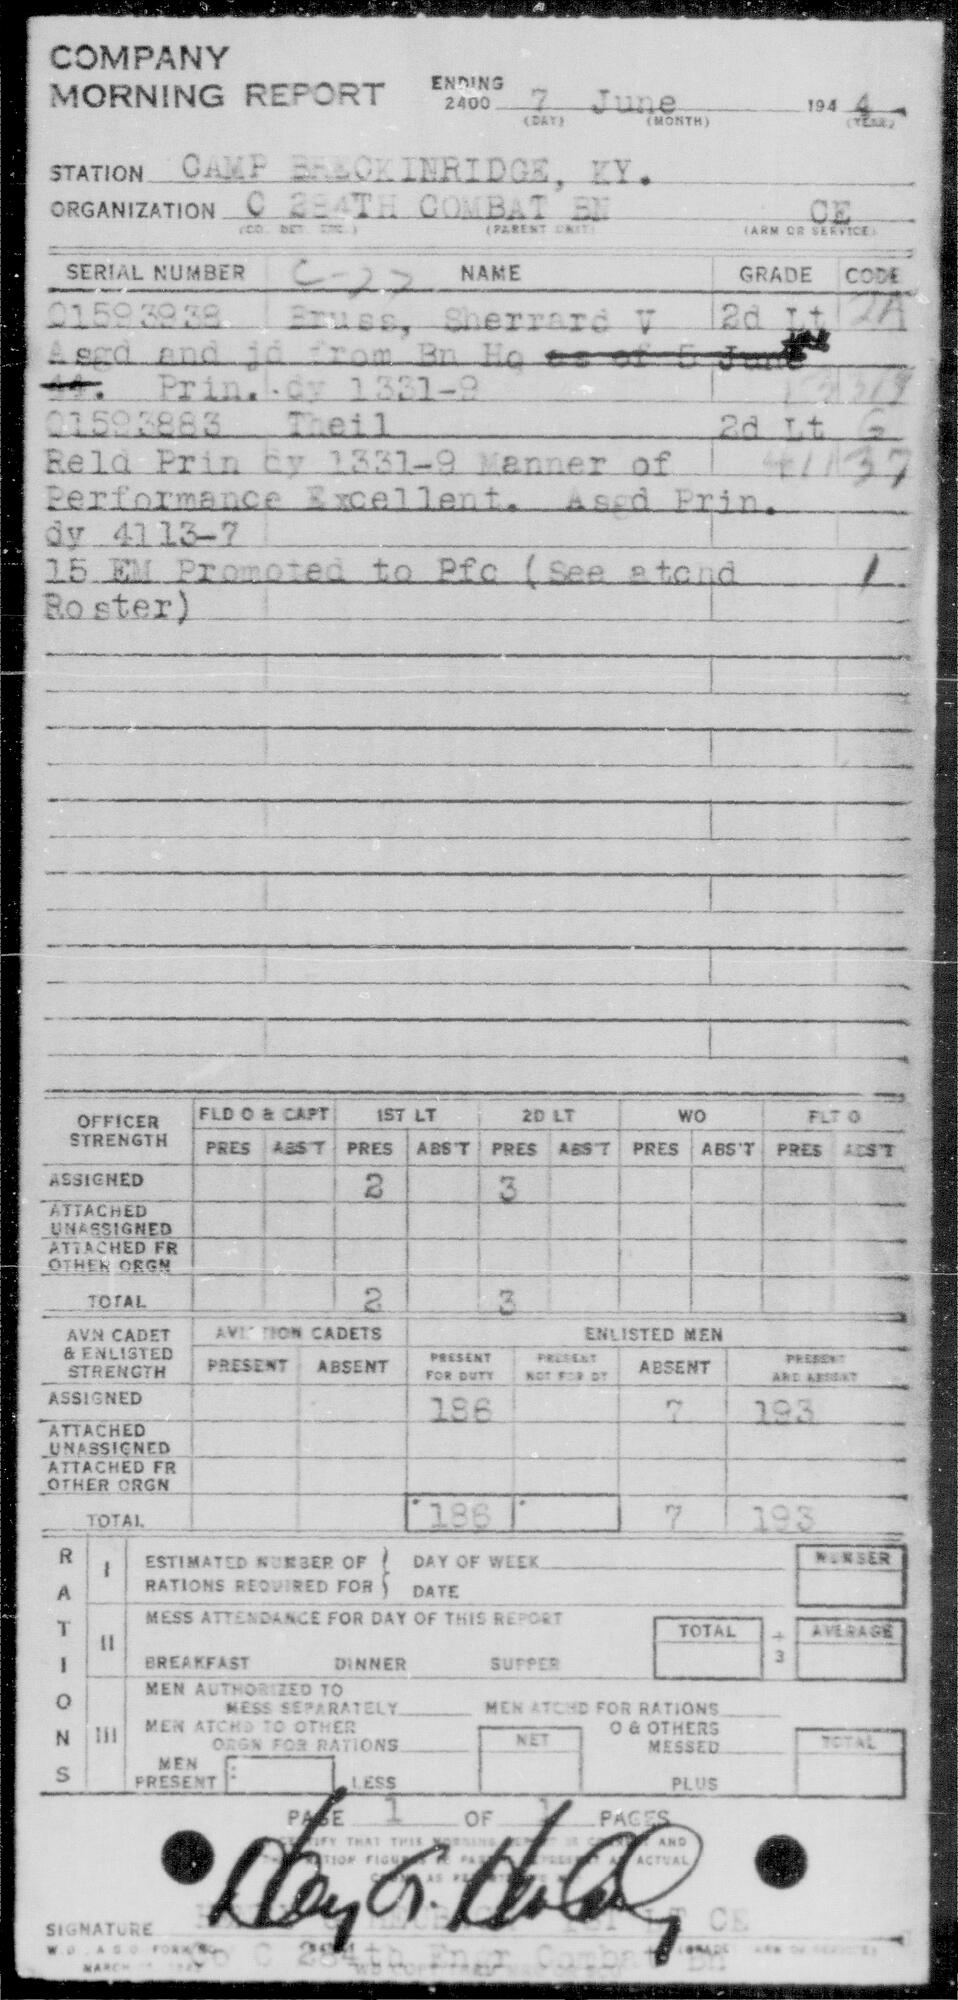 COMPANY
MORNING REPORT ENDING 2400 7 June 194 4
(DAY) (MONTH) (YEAR)
STATION CAMP BRECKINRIDGE, KY.
ORGANIZATION C 284TH COMBAT BN CE
(CO. DET. ETC.) (PARENT UNIT) (ARM OR SERVICE)
SERIAL NUMBER C-27 NAME GRADE CODE
01593938 Bruss, Sherrard V 2d Lt
Asgd and jd from Bn Hq as of 5 June
44. Prin. dy 1331-9
01593883 Theil 2d Lt G
Reld Prin dy 1331-9 Manner of 411 37
Performance Excellent. Asgd Prin.
dy 4113-7
15 EM Promoted to Pfc (See atchd 1
Roster)
OFFICER STRENGTH FLD O & CAPT 1ST LT 2D LT WO FLT O
PRES ABS'T PRES ABS'T PRES ABS'T PRES ABS'T PRES ABS'T
ASSIGNED 2 3
ATTACHED
UNASSIGNED
ATTACHED FR
OTHER ORGN
TOTAL 2 3
AVN CADET & ENLISTED STRENGTH AVIATION CADETS ENLISTED MEN
PRESENT ABSENT PRESENT FOR DUTY PRESENT NOT FOR DY ABSENT PRESENT AND ABSENT
ASSIGNED 186 7 193
ATTACHED
UNASSIGNED
ATTACHED FR
OTHER ORGN
TOTAL 186 7 193
RATIONS
I ESTIMATED NUMBER OF DAY OF WEEK NUMBER
RATIONS REQUIRED FOR DATE
II MESS ATTENDANCE FOR DAY OF THIS REPORT TOTAL ÷ 3 AVERAGE
BREAKFAST DINNER SUPPER
III MEN AUTHORIZED TO
MESS SEPARATELY MEN ATCHD FOR RATIONS
MEN ATCHD TO OTHER O & OTHERS
ORGN FOR RATIONS NET MESSED TOTAL
MEN
PRESENT LESS PLUS
PAGE 1 OF 1 PAGES
CERTIFY THAT THIS MORNING REPORT IS CORRECT AND
ACTUAL
SIGNATURE 1st LT CE
W.D. A.G.O. FORM NO. Co C 284th Engr Combat BN
MARCH